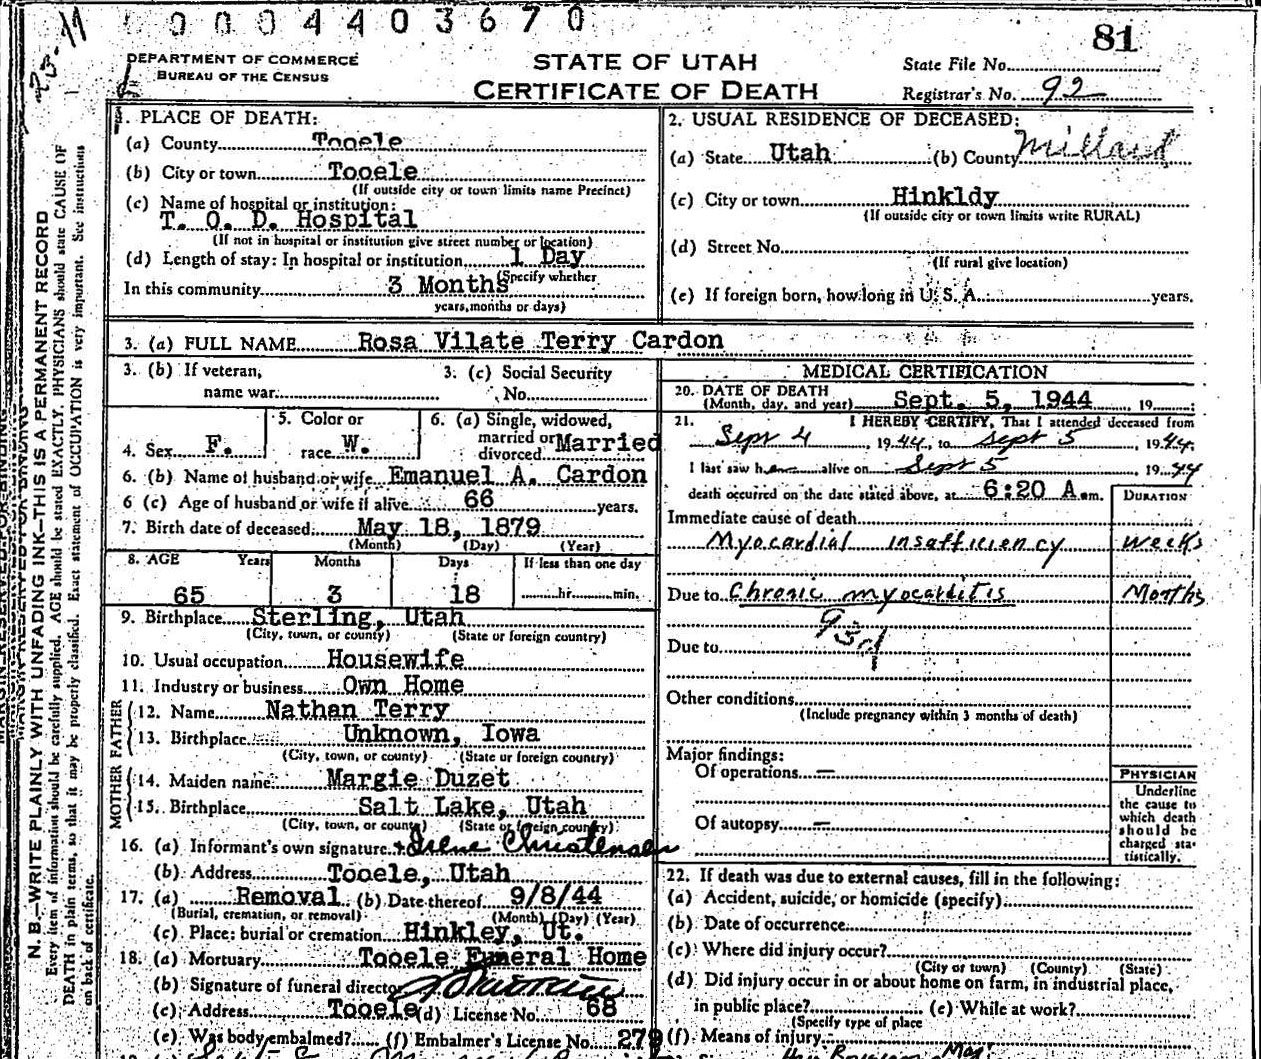 0004403670
23-11
81
DEPARTMENT OF COMMERCE
BUREAU OF THE CENSUS
STATE OF UTAH
CERTIFICATE OF DEATH
State File No.
Registrar's No. 92
N. B.—WRITE PLAINLY WITH UNFADING INK—THIS IS A PERMANENT RECORD
Every item of information should be carefully supplied. AGE should be stated EXACTLY. PHYSICIANS should state CAUSE OF
DEATH in plain terms, so that it may be properly classified. Exact statement of OCCUPATION is very important. See instructions
on back of certificate.
1. PLACE OF DEATH:
(a) County Tooele
(b) City or town Tooele
(If outside city or town limits name Precinct)
(c) Name of hospital or institution:
T. O. D. Hospital
(If not in hospital or institution give street number or location)
(d) Length of stay: In hospital or institution 1 Day
(Specify whether
In this community 3 Months
years, months or days)
2. USUAL RESIDENCE OF DECEASED:
(a) State Utah (b) County Millard
(c) City or town Hinkldy
(If outside city or town limits write RURAL)
(d) Street No.
(If rural give location)
(e) If foreign born, how long in U. S. A. years.
3. (a) FULL NAME Rosa Vilate Terry Cardon
3. (b) If veteran,
name war
3. (c) Social Security
No.
4. Sex F.
5. Color or
race W.
6. (a) Single, widowed,
married or
divorced Married
6. (b) Name of husband or wife Emanuel A. Cardon
6 (c) Age of husband or wife if alive 66 years.
7. Birth date of deceased May 18, 1879
(Month) (Day) (Year)
8. AGE Years Months Days If less than one day
65 3 18 hr. min.
9. Birthplace Sterling, Utah
(City, town, or county) (State or foreign country)
10. Usual occupation Housewife
11. Industry or business Own Home
FATHER
12. Name Nathan Terry
13. Birthplace Unknown, Iowa
(City, town, or county) (State or foreign country)
MOTHER
14. Maiden name Margie Duzet
15. Birthplace Salt Lake, Utah
(City, town, or county) (State or foreign country)
16. (a) Informant's own signature Irene Christensen
(b) Address Tooele, Utah
17. (a) Removal (b) Date thereof 9/8/44
(Burial, cremation, or removal) (Month) (Day) (Year)
(c) Place: burial or cremation Hinkley, Ut.
18. (a) Mortuary Tooele Funeral Home
(b) Signature of funeral director
(c) Address Tooele (d) License No. 68
(e) Was body embalmed? (f) Embalmer's License No. 279
MEDICAL CERTIFICATION
20. DATE OF DEATH
(Month, day, and year) Sept. 5, 1944, 19
21. I HEREBY CERTIFY, That I attended deceased from
Sept 4, 1944, to Sept 5, 1944.
I last saw her alive on Sept 5, 1944
death occurred on the date stated above, at 6:20 A.m.
DURATION
Immediate cause of death
Myocardial insafficiency weeks
Due to Chronic myocarditis Months
93d
Due to
Other conditions
(Include pregnancy within 3 months of death)
Major findings:
Of operations —
Of autopsy —
PHYSICIAN
Underline
the cause to
which death
should be
charged sta-
tistically.
22. If death was due to external causes, fill in the following:
(a) Accident, suicide, or homicide (specify)
(b) Date of occurrence
(c) Where did injury occur?
(City or town) (County) (State)
(d) Did injury occur in or about home on farm, in industrial place,
in public place? (e) While at work?
(Specify type of place
(f) Means of injury